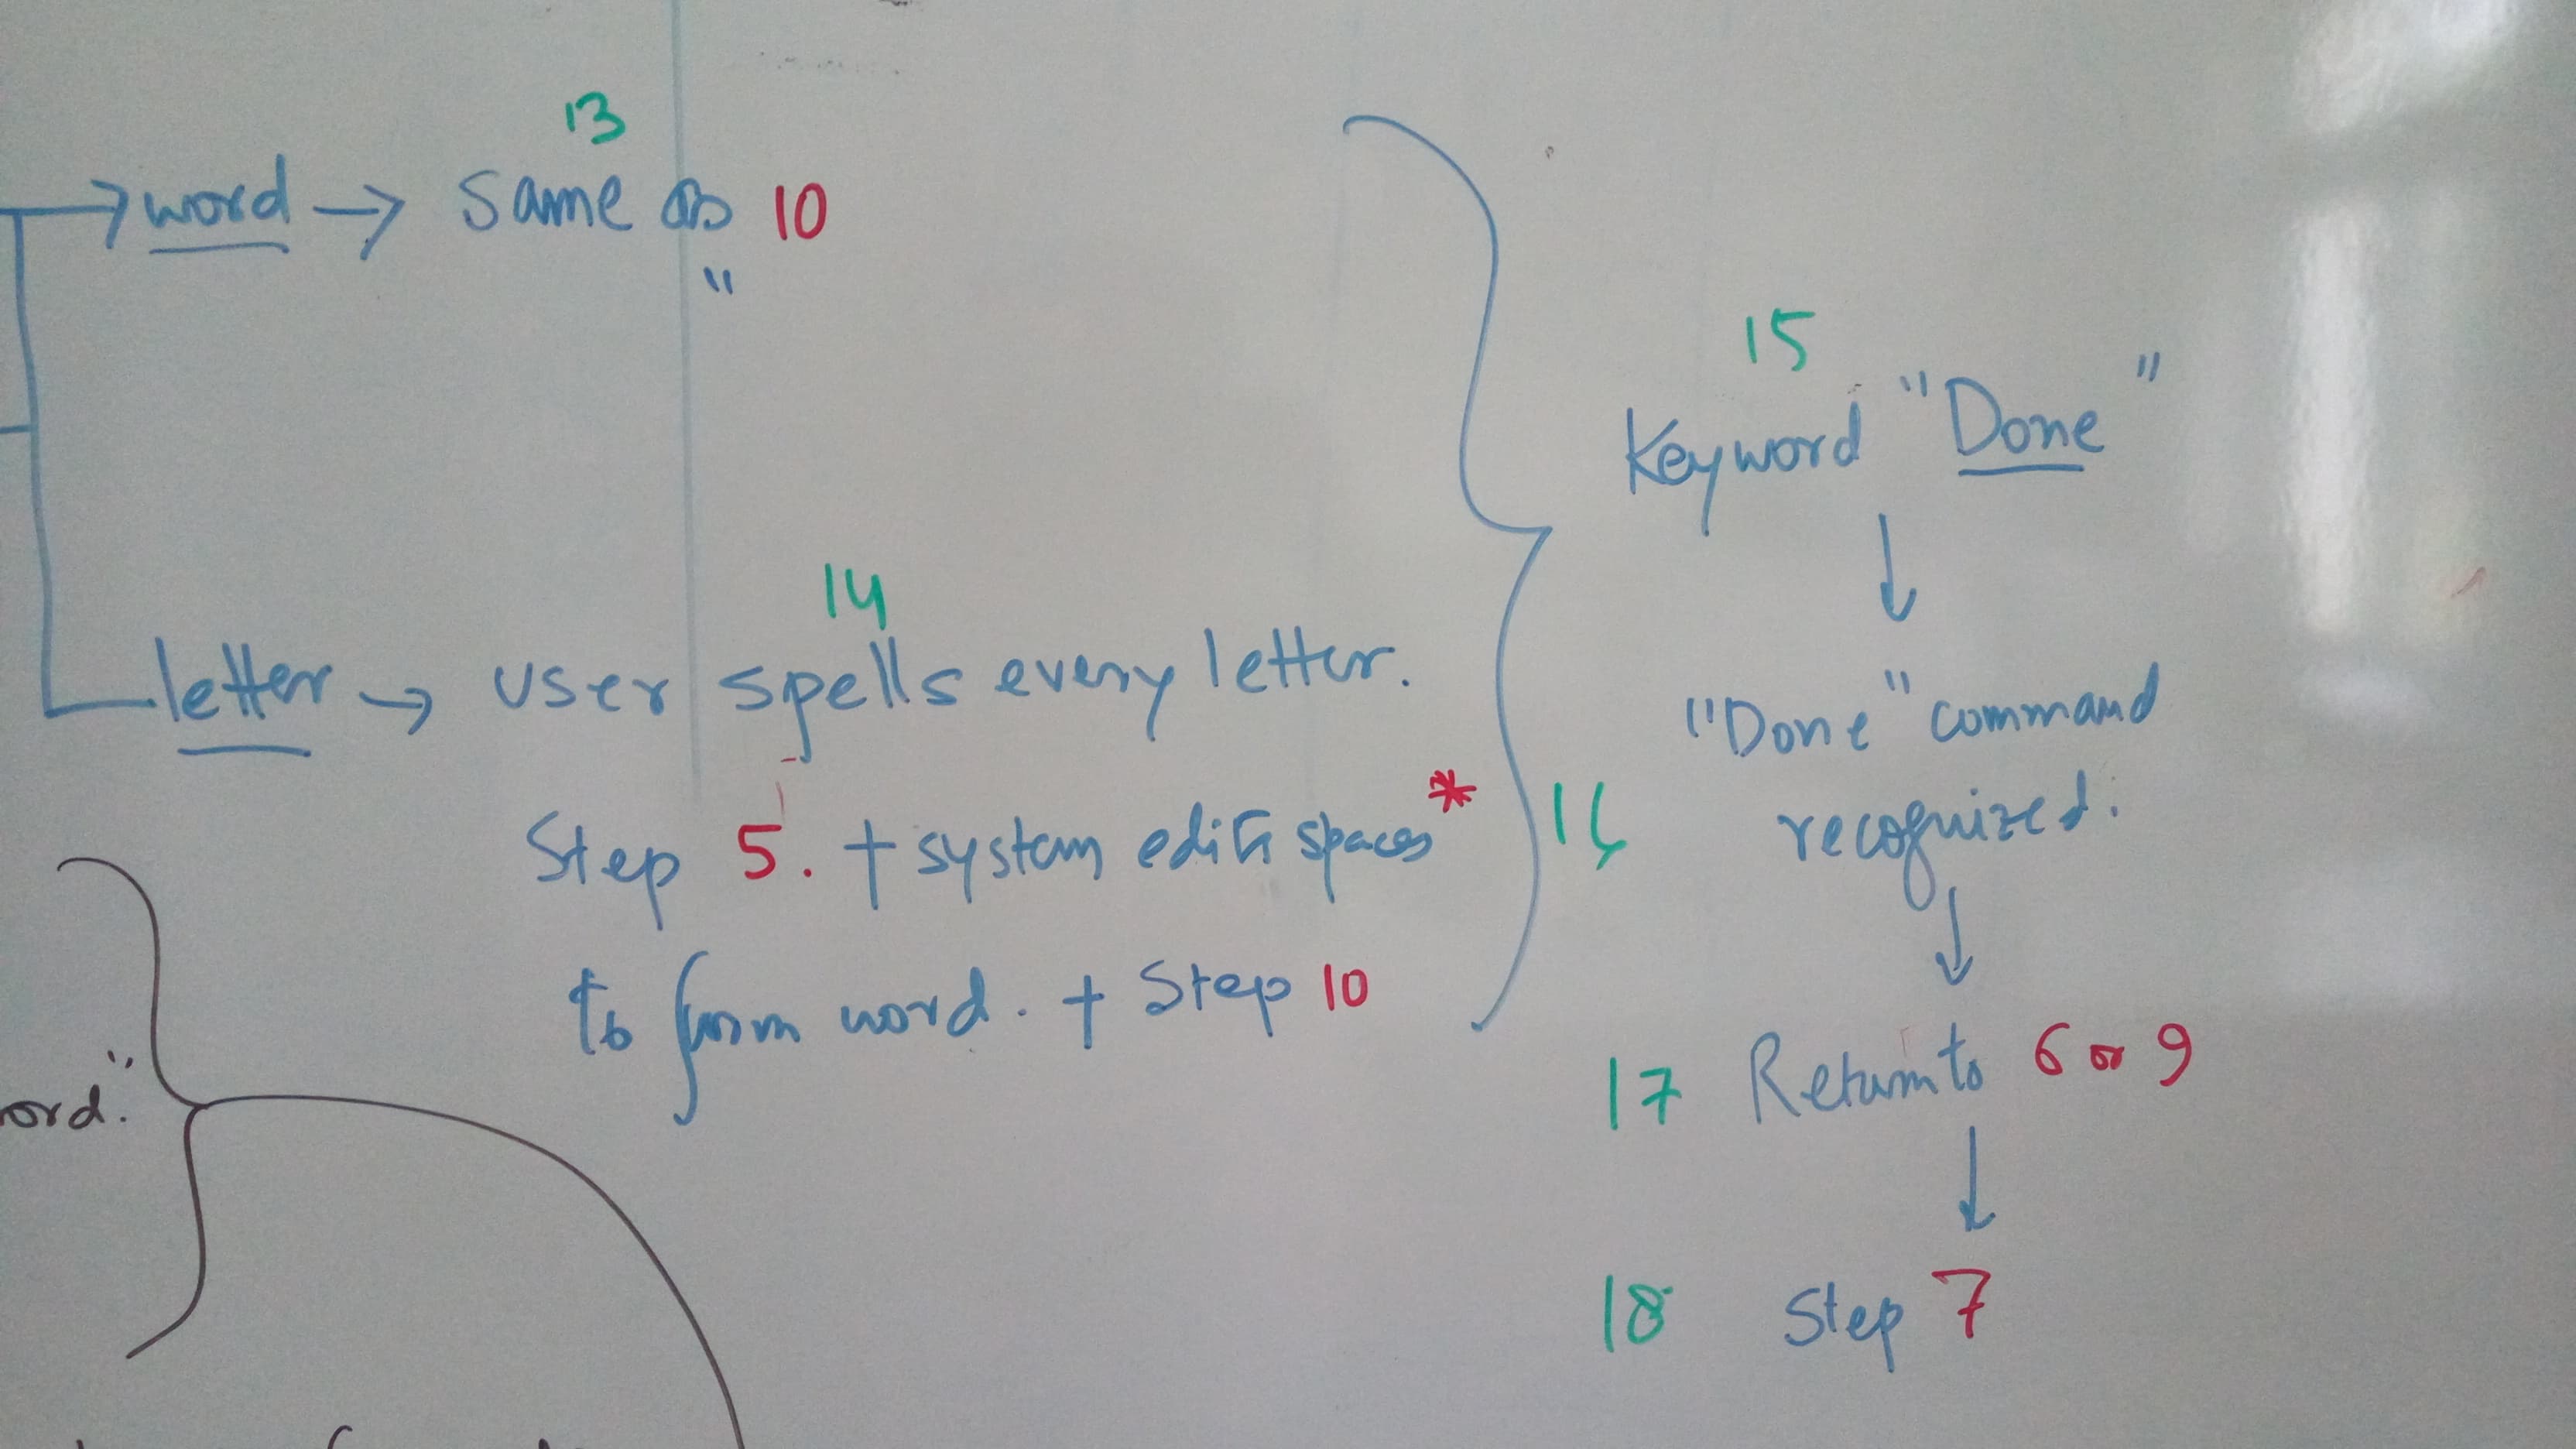 13
word → same as 10
"
14
letter → user spells every letter.
Step 5. + system edits spaces*
to form word. + Step 10
15
Keyword "Done"
↓
16 "Done" command
recognized.
↓
17 Return to 6 or 9
↓
18 Step 7
ord."